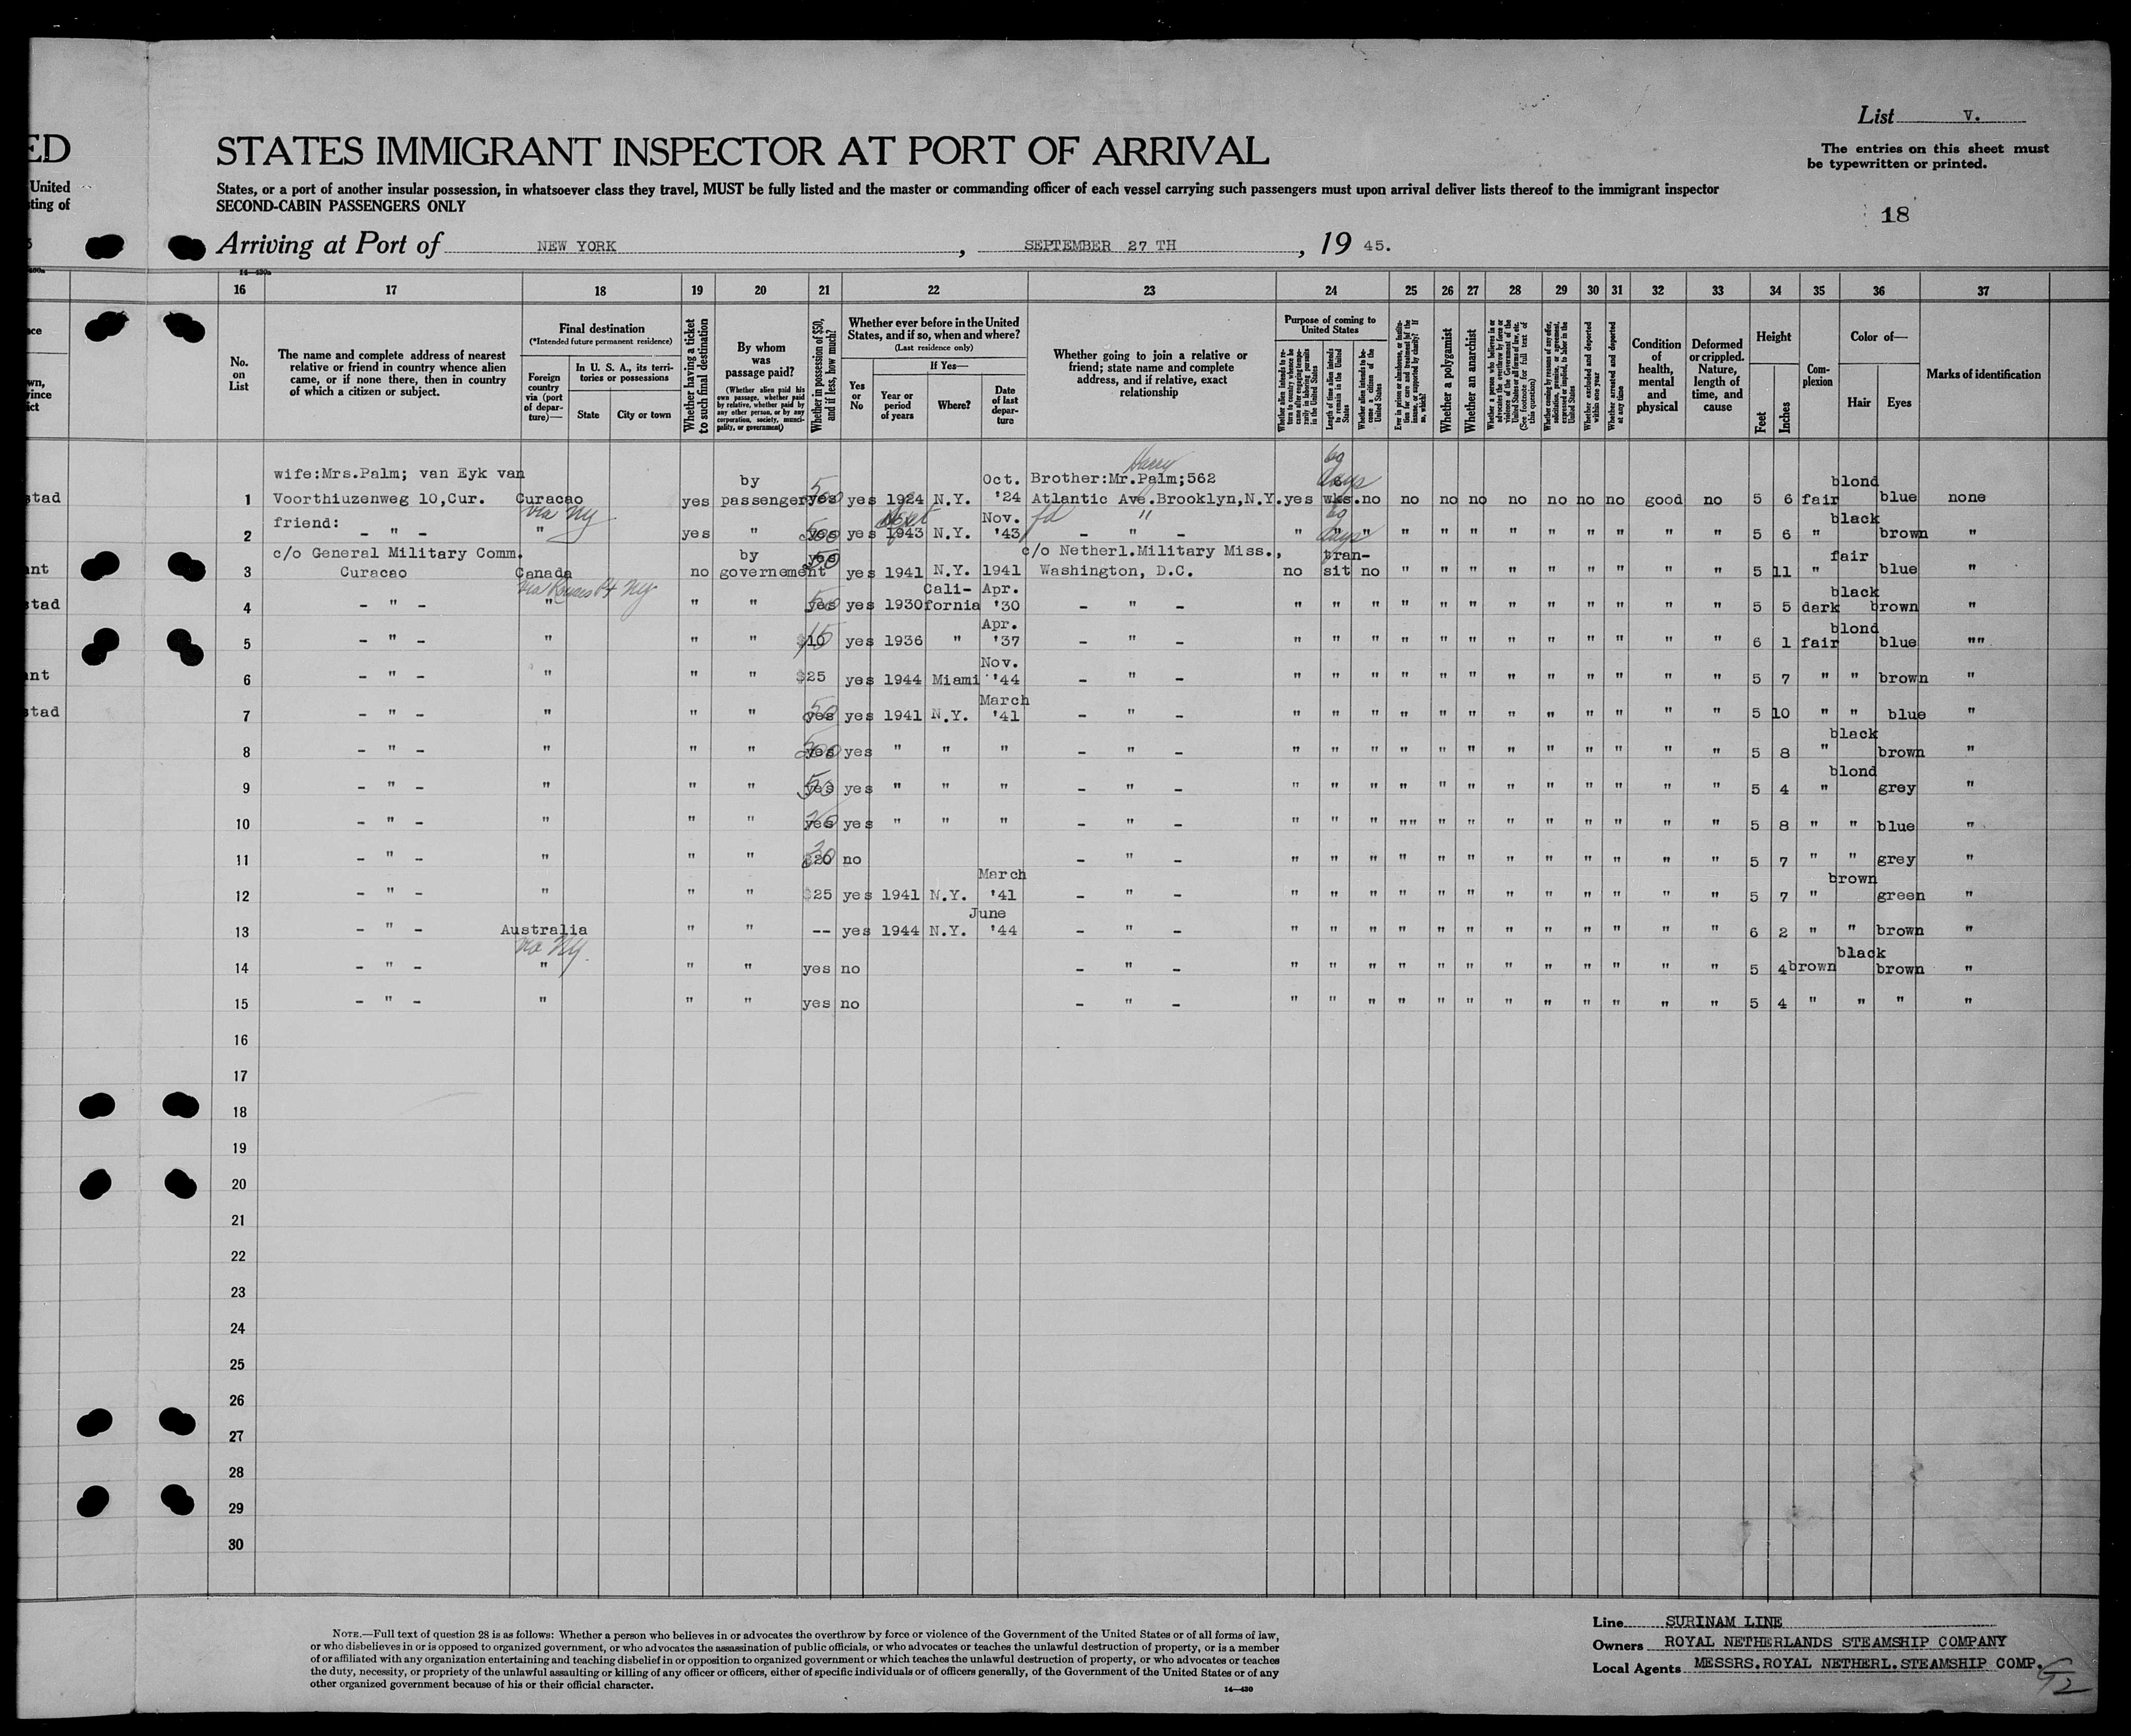 List V.
ED STATES IMMIGRANT INSPECTOR AT PORT OF ARRIVAL
The entries on this sheet must
be typewritten or printed.
United States, or a port of another insular possession, in whatsoever class they travel, MUST be fully listed and the master or commanding officer of each vessel carrying such passengers must upon arrival deliver lists thereof to the immigrant inspector
SECOND-CABIN PASSENGERS ONLY
18
Arriving at Port of NEW YORK, SEPTEMBER 27 TH, 19 45.
16 17 18 19 20 21 22 23 24 25 26 27 28 29 30 31 32 33 34 35 36 37
No. on List
The name and complete address of nearest relative or friend in country whence alien came, or if none there, then in country of which a citizen or subject.
Final destination
(*Intended future permanent residence)
Foreign country via (port of departure)—
In U. S. A., its territories or possessions
State
City or town
Whether having a ticket to such final destination
By whom was passage paid?
(Whether alien paid his own passage, whether paid by relative, whether paid by any other person, or by any corporation, society, municipality, or government)
Whether in possession of $50, and if less, how much?
Whether ever before in the United States, and if so, when and where?
(Last residence only)
Yes or No
If Yes—
Year or period of years
Where?
Date of last departure
Whether going to join a relative or friend; state name and complete address, and if relative, exact relationship
Purpose of coming to United States
Length of time alien intends to remain in the United States
Whether alien intends to become a citizen of the United States
Whether a polygamist
Whether an anarchist
(See footnote for full text of this question)
Whether excluded and deported within one year
Whether arrested and deported at any time
Condition of health, mental and physical
Deformed or crippled. Nature, length of time, and cause
Height
Feet
Inches
Complexion
Color of—
Hair
Eyes
Marks of identification
wife:Mrs.Palm; van Eyk van by Oct. Brother: Harry Mr.Palm;562 60 days blond
1 Voorthiuzenweg 10,Cur. Curacao yes passenger yes yes 1924 N.Y. '24 Atlantic Ave.Brooklyn,N.Y. yes wks. no no no no no no no no good no 5 6 fair blue none
friend: via NY Sept Nov. fd " 60 days black
2 - " - " yes " yes yes 1943 N.Y. '43 - " - " " " " " " " " " " " " 5 6 " brown "
c/o General Military Comm. by yes c/o Netherl.Military Miss., tran- fair
3 Curacao Canada no governement 50 yes 1941 N.Y. 1941 Washington, D.C. no sit no " " " " " " " " " 5 11 " blue "
via Rouses Pt NY Cali- Apr. black
4 - " - " " " yes yes 1930 fornia '30 - " - " " " " " " " " " " " " 5 5 dark brown "
Apr. blond
5 - " - " " " $10 15 yes 1936 " '37 - " - " " " " " " " " " " " " 6 1 fair blue ""
Nov.
6 - " - " " " $25 yes 1944 Miami '44 - " - " " " " " " " " " " " " 5 7 " " brown "
March
7 - " - " " " yes 50 yes 1941 N.Y. '41 - " - " " " " " " " " " " " " 5 10 " " blue "
black
8 - " - " " " yes yes " " " - " - " " " " " " " " " " " " 5 8 " brown "
blond
9 - " - " " " yes 50 yes " " " - " - " " " " " " " " " " " " 5 4 " grey "
10 - " - " " " yes yes " " " - " - " " " "" " " " " " " " " 5 8 " " blue "
11 - " - " " " $20 no - " - " " " " " " " " " " " " 5 7 " " grey "
March brown
12 - " - " " " $25 yes 1941 N.Y. '41 - " - " " " " " " " " " " " " 5 7 " green "
June
13 - " - Australia " " -- yes 1944 N.Y. '44 - " - " " " " " " " " " " " " 6 2 " " brown "
via NY. black
14 - " - " " " yes no - " - " " " " " " " " " " " " 5 4 brown brown "
15 - " - " " " yes no - " - " " " " " " " " " " " " 5 4 " " " "
16
17
18
19
20
21
22
23
24
25
26
27
28
29
30
NOTE.—Full text of question 28 is as follows: Whether a person who believes in or advocates the overthrow by force or violence of the Government of the United States or of all forms of law,
or who disbelieves in or is opposed to organized government, or who advocates the assassination of public officials, or who advocates or teaches the unlawful destruction of property, or is a member
of or affiliated with any organization entertaining and teaching disbelief in or opposition to organized government or which teaches the unlawful destruction of property, or who advocates or teaches
the duty, necessity, or propriety of the unlawful assaulting or killing of any officer or officers, either of specific individuals or of officers generally, of the Government of the United States or of any
other organized government because of his or their official character.
14—430
Line SURINAM LINE
Owners ROYAL NETHERLANDS STEAMSHIP COMPANY
Local Agents MESSRS.ROYAL NETHERL.STEAMSHIP COMP.